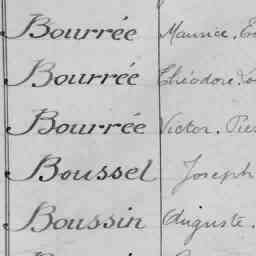 Bourrée Maurice.
Bourrée Théodore.
Bourrée Victor.
Boussel Joseph
Boussin Auguste.